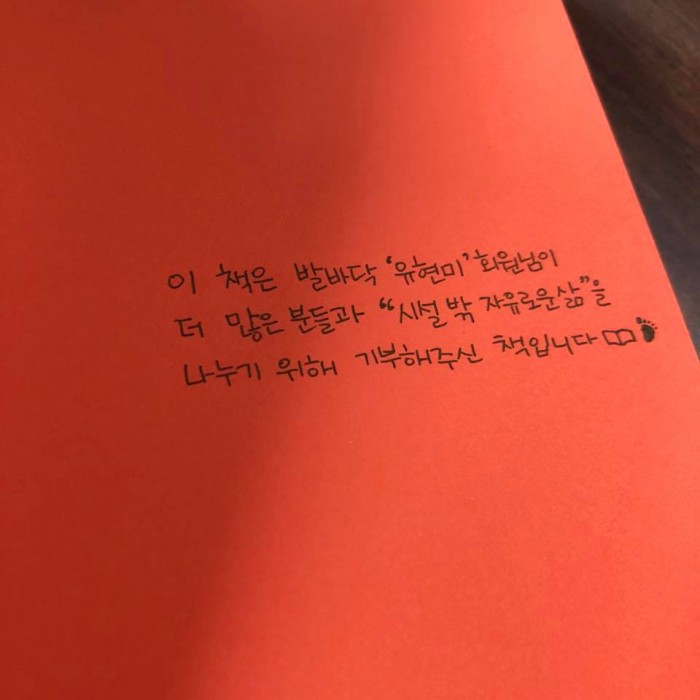 이 책은 발바닥 ‘유현미’ 회원님이
더 많은 분들과 “시설 밖 자유로운 삶”을
나누기 위해 기부해주신 책입니다